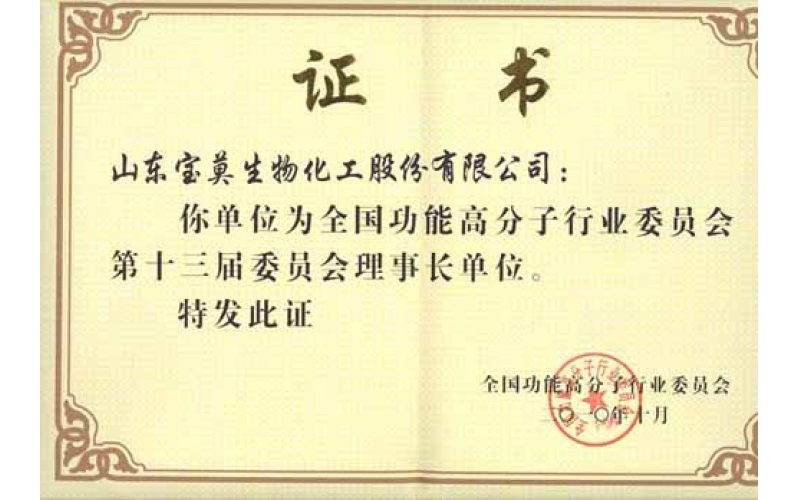 证 书
山东宝莫生物化工股份有限公司：
你单位为全国功能高分子行业委员会
第十三届委员会理事长单位。
特发此证
全国功能高分子行业委员会
二〇一〇年十月